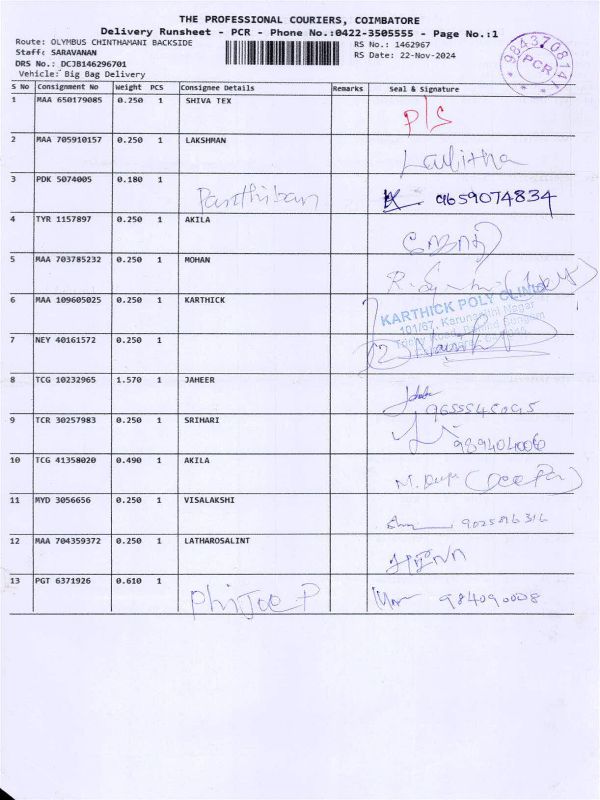 THE PROFESSIONAL COURIERS, COIMBATORE
Delivery Runsheet - PCR - Phone No.:0422-3505555 - Page No.:1
Route: OLYMBUS CHINTHAMANI BACKSIDE
RS No.: 1462967
Staff: SARAVANAN
RS Date: 22-Nov-2024
DRS No.: DCJB146296701
Vehicle: Big Bag Delivery
PCR
S No Consignment No Weight PCS Consignee Details Remarks Seal & Signature
1 MAA 650179085 0.250 1 SHIVA TEX P/S
2 MAA 705910157 0.250 1 LAKSHMAN Lalitha
3 PDK 5074005 0.180 1 Parthiban 9659074834
4 TYR 1157897 0.250 1 AKILA
5 MAA 703785232 0.250 1 MOHAN
6 MAA 109605025 0.250 1 KARTHICK
KARTHICK POLY CLINIC
101/67, Karunanithi Nagar
7 NEY 40161572 0.250 1
8 TCG 10232965 1.570 1 JAHEER
9655545095
9 TCR 30257983 0.250 1 SRIHARI
989404006
10 TCG 41358020 0.490 1 AKILA
11 MYD 3056656 0.250 1 VISALAKSHI
12 MAA 704359372 0.250 1 LATHAROSALINT
13 PGT 6371926 0.610 1